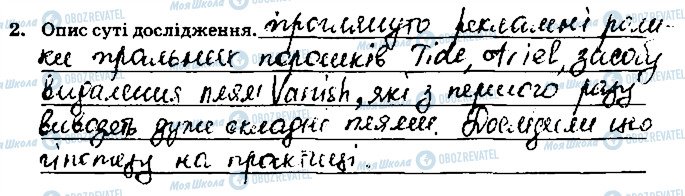 2. Опис суті дослідження. Проглянуто рекламні роли-
ки пральних порошків Tide, Ariel, засобу
видалення плям Vanish, які з першого разу
виводять дуже складні плями. Дослідили цю
гіпотезу на практиці.